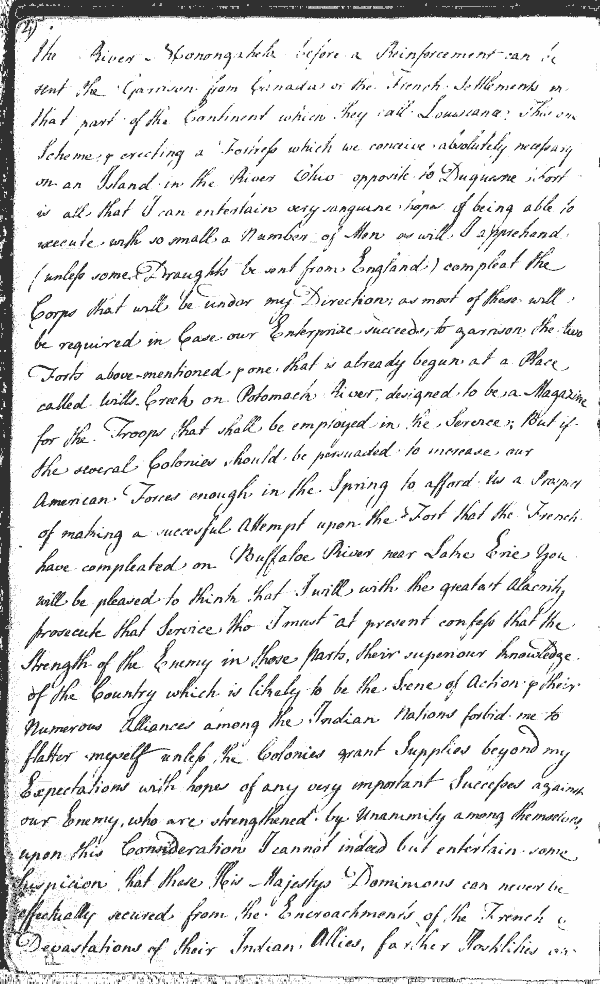 25
the River Monongahela before a Reinforcement can be
sent the Garrison from Canada or the French Settlements in
that part of the Continent which they call Louisiana; This
Scheme, & erecting a Fortress which we conceive absolutely necessary
on an Island in the River Ohio opposite to Duquesne Fort
is all that I can entertain very sanguine hopes of being able to
execute with so small a Number of Men as will I apprehend
(unless some Draughts be sent from England) compleat the
Corps that will be under my Direction; as most of these will
be required in Case our Enterprize succeeds, to garrison the two
Forts above-mentioned & one that is already begun at a Place
called Wills Creek on Potomack River, designed to be a Magazine
for the Troops that shall be employed in the Service; But if
the several Colonies should be persuaded to increase our
American Forces enough in the Spring to afford us a Prosper
of making a succesful Attempt upon the Fort that the French
have compleated on Buffaloe River near Lake Erie You
will be pleased to think that I will with the greatest Alacrity
prosecute that Service tho I must at present confess that the
Strength of the Enemy in those Parts, their superiour knowledge
of the Country which is likely to be the Scene of Action & their
Numerous Alliances among the Indian Nations forbid me to
flatter myself unless the Colonies grant Supplies beyond my
Expectations with hopes of any very important Successes against
our Enemy, who are strengthened by Unanimity among themselves,
upon this Consideration I cannot indeed but entertain some
Suspicion that these His Majestys Dominions can never be
effectually secured from the Encroachments of the French &
Devastations of their Indian Allies, farther Hostilities